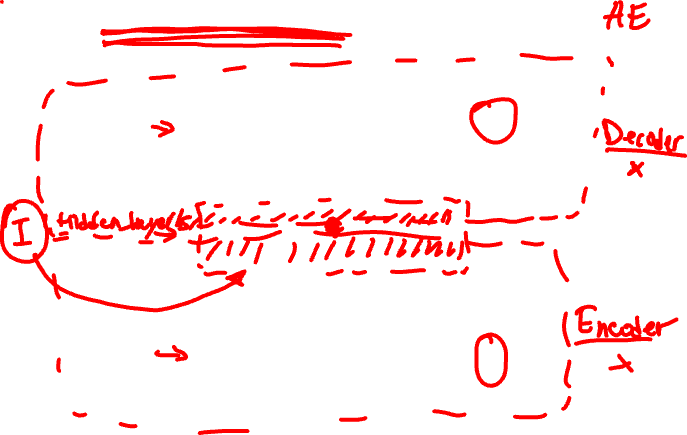 AE
Decoder
x
Hidden layers
I
Encoder
x